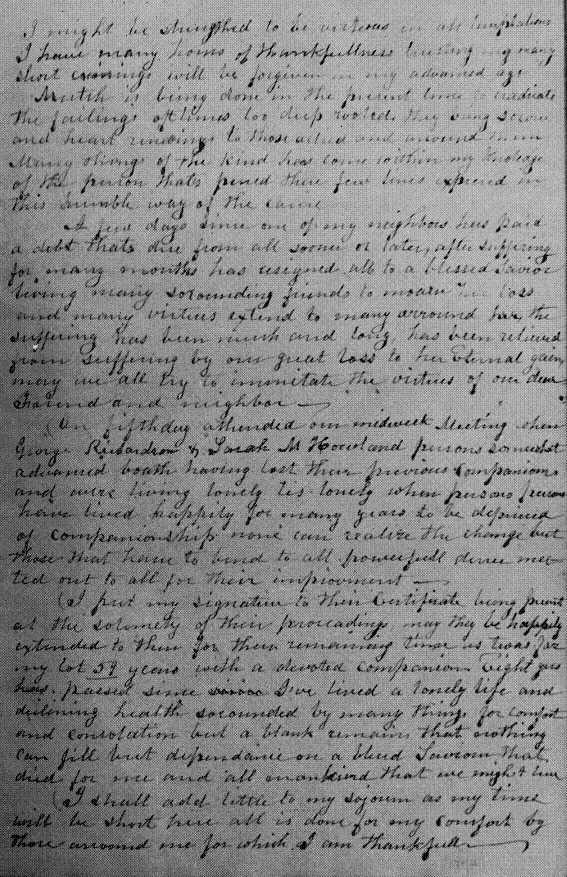 I might be strengthed to be virteous in all temptations
I have many hours of thankfullness trusting my many
short comings will be forgiven in my advanced age
Mutch is being done in the present time to eradicate
the failings oftimes too deep rooted. they bring sorow
and heart rendings to those allied and around them
Many things of the kind has come within my knolege
of the person thats pened these few lines expresed in
this humble way of the cause
A few days since one of my neighbors has paid
a debt thats due from all sooner or later, after suffering
for many months has resigned all to a blessed Savior
living many sorounding friends to moarn her loss
and many virtues extend to many arround her, the
suffering has been much and long, has been relieved
from suffering by our great loss to her eternal gain,
may we all try to immitate the virtues of our dear
Freind and neighbor
On fifthday attended our midweek Meeting when
George Richardson & Sarah M Howland persons somwhat
advanced boath having lost their previous companions
and were living lonely tis lonely when persons
have lived happily for many years to be deprived
of companionship none can realize the change but
those that have to bend to all powerfull decree met-
ted out to all for their improvment
I put my signature to their Certificate being present
at the solemety of their proceedings, may they be happily
extended to them for their remaining time as twas for
my lot 59 years with a devoted companion. Eight years
has passed since I've lived a lonely life and
declining health sorounded by many things for comfort
and consolation but a blank remains that nothing
can fill but dependance on a blesed Saviour that
died for me and all mankind that we might live
I shall add little to my sojourn as my time
will be short here all is done for my comfort by
those arround me for which I am thankfull